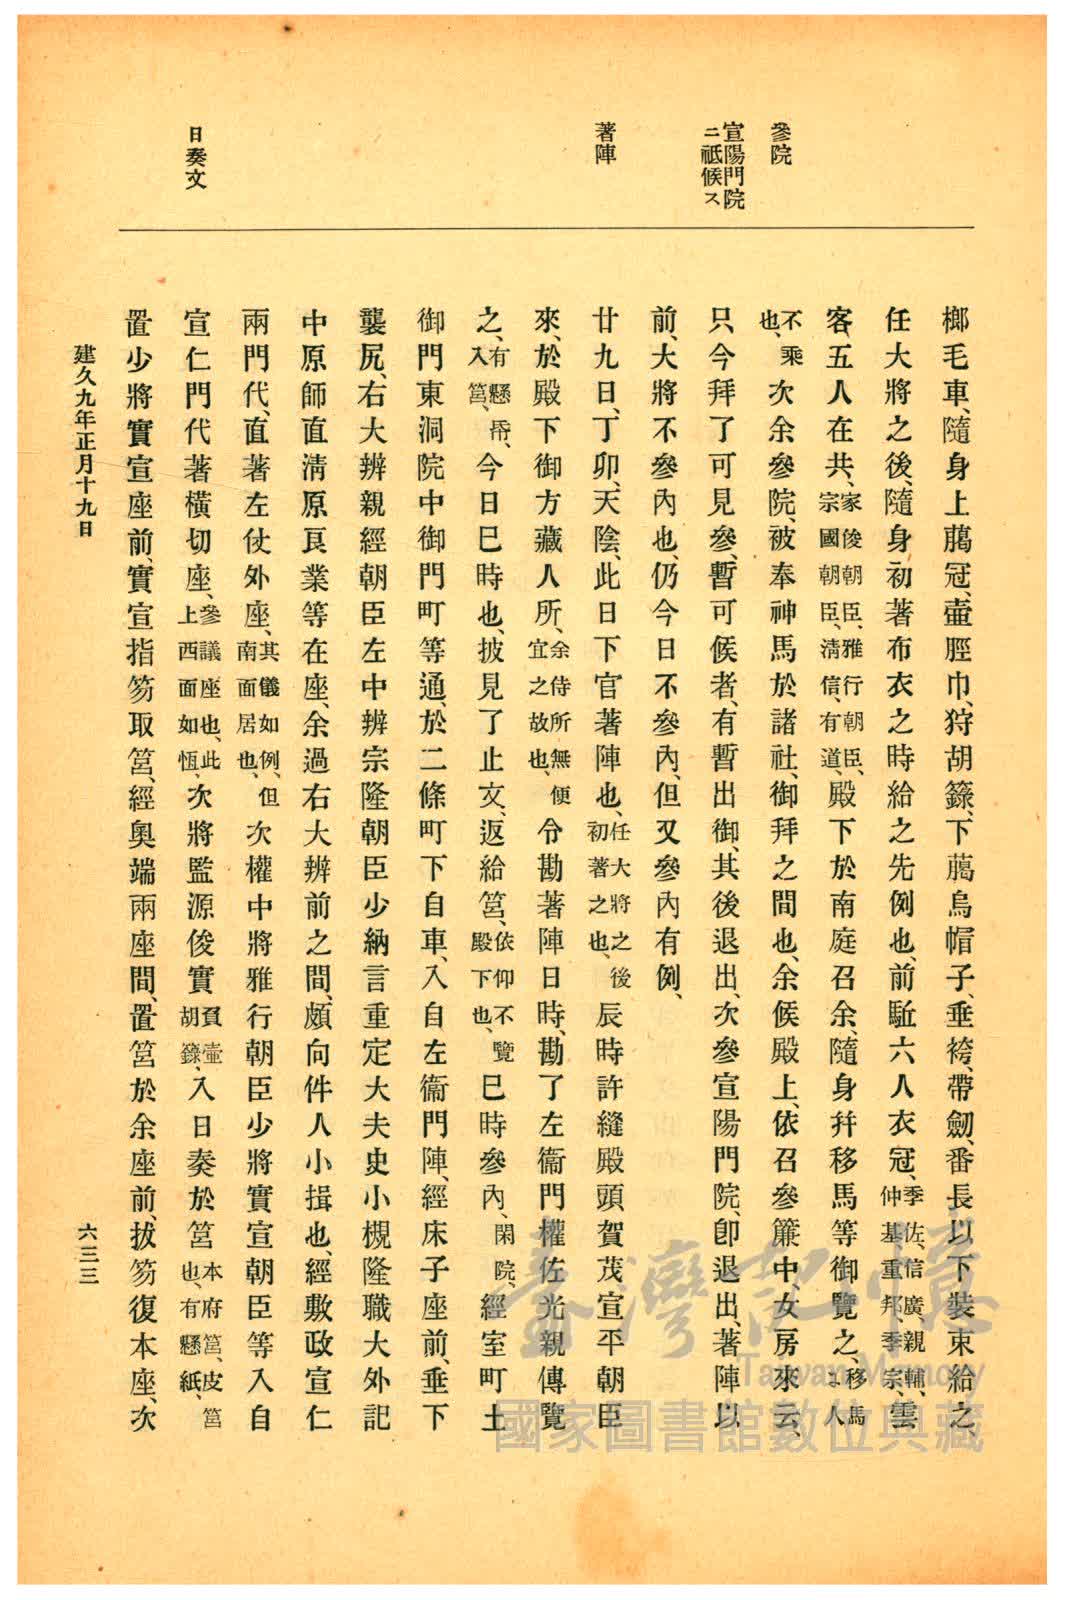 參院
宣陽門院
ニ祗候ス
著陣
日奏文
榔毛車、隨身上﨟冠、壷脛巾、狩胡籙、下﨟烏帽子、垂袴、帶劒、番長以下裝束給之、
任大將之後、隨身初著布衣之時給之先例也、前駈六人衣冠、季佐、信廣、親輔、仲基、重邦、季宗、雲
客、五人在共、家俊朝臣、雅行朝臣、宗國朝臣、淸信、有道、殿下於南庭召余、隨身幷移馬等御覽之、移馬ニ人
不乘也、次余參院、被奉神馬於諸社、御拜之間也、余候殿上、依召參簾中、女房來云、
只今拜了可見參、暫可候者、有暫出御、其後退出、次參宣陽門院、卽退出、著陣以
前、大將不參內也、仍今日不參內、但又參內有例、
廿九日、丁卯、天陰、此日下官著陣也、任大將之後初著之也、辰時許縫殿頭賀茂宣平朝臣
來、於殿下御方藏人所、余侍所無便宜之故也、令勘著陣日時、勘了左衞門權佐光親傳覽
之、有懸帋、入筥、今日巳時也、披見了止文、返給筥、依仰不覽殿下也、巳時參內、閑院、經室町土
御門東洞院中御門町等通、於二條町下自車、入自左衞門陣、經床子座前、垂下
襲尻、右大辨親經朝臣左中辨宗隆朝臣少納言重定大夫史小槻隆職大外記
中原師直淸原良業等在座、余過右大辨前之間、頗向件人小揖也、經敷政宣仁
兩門代、直著左仗外座、其儀如例、但南面居也、次權中將雅行朝臣少將實宣朝臣等入自
宣仁門代著橫切座、參議座也、此上西面如恆、次將監源俊實負壷胡籙、入日奏於筥本府筥、皮筥也、有懸紙、
置少將實宣座前、實宣指笏取筥、經奧端兩座間、置筥於余座前、拔笏復本座、次
建久九年正月十九日
六三三
臺灣記憶
Taiwan Memory
國家圖書館數位典藏